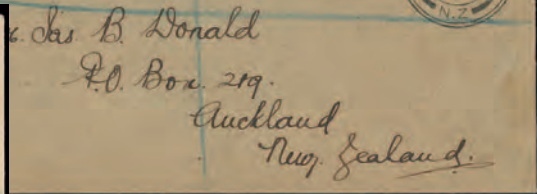 N.Z.
Jas B. Donald
P.O. Box. 219.
Auckland
New Zealand.